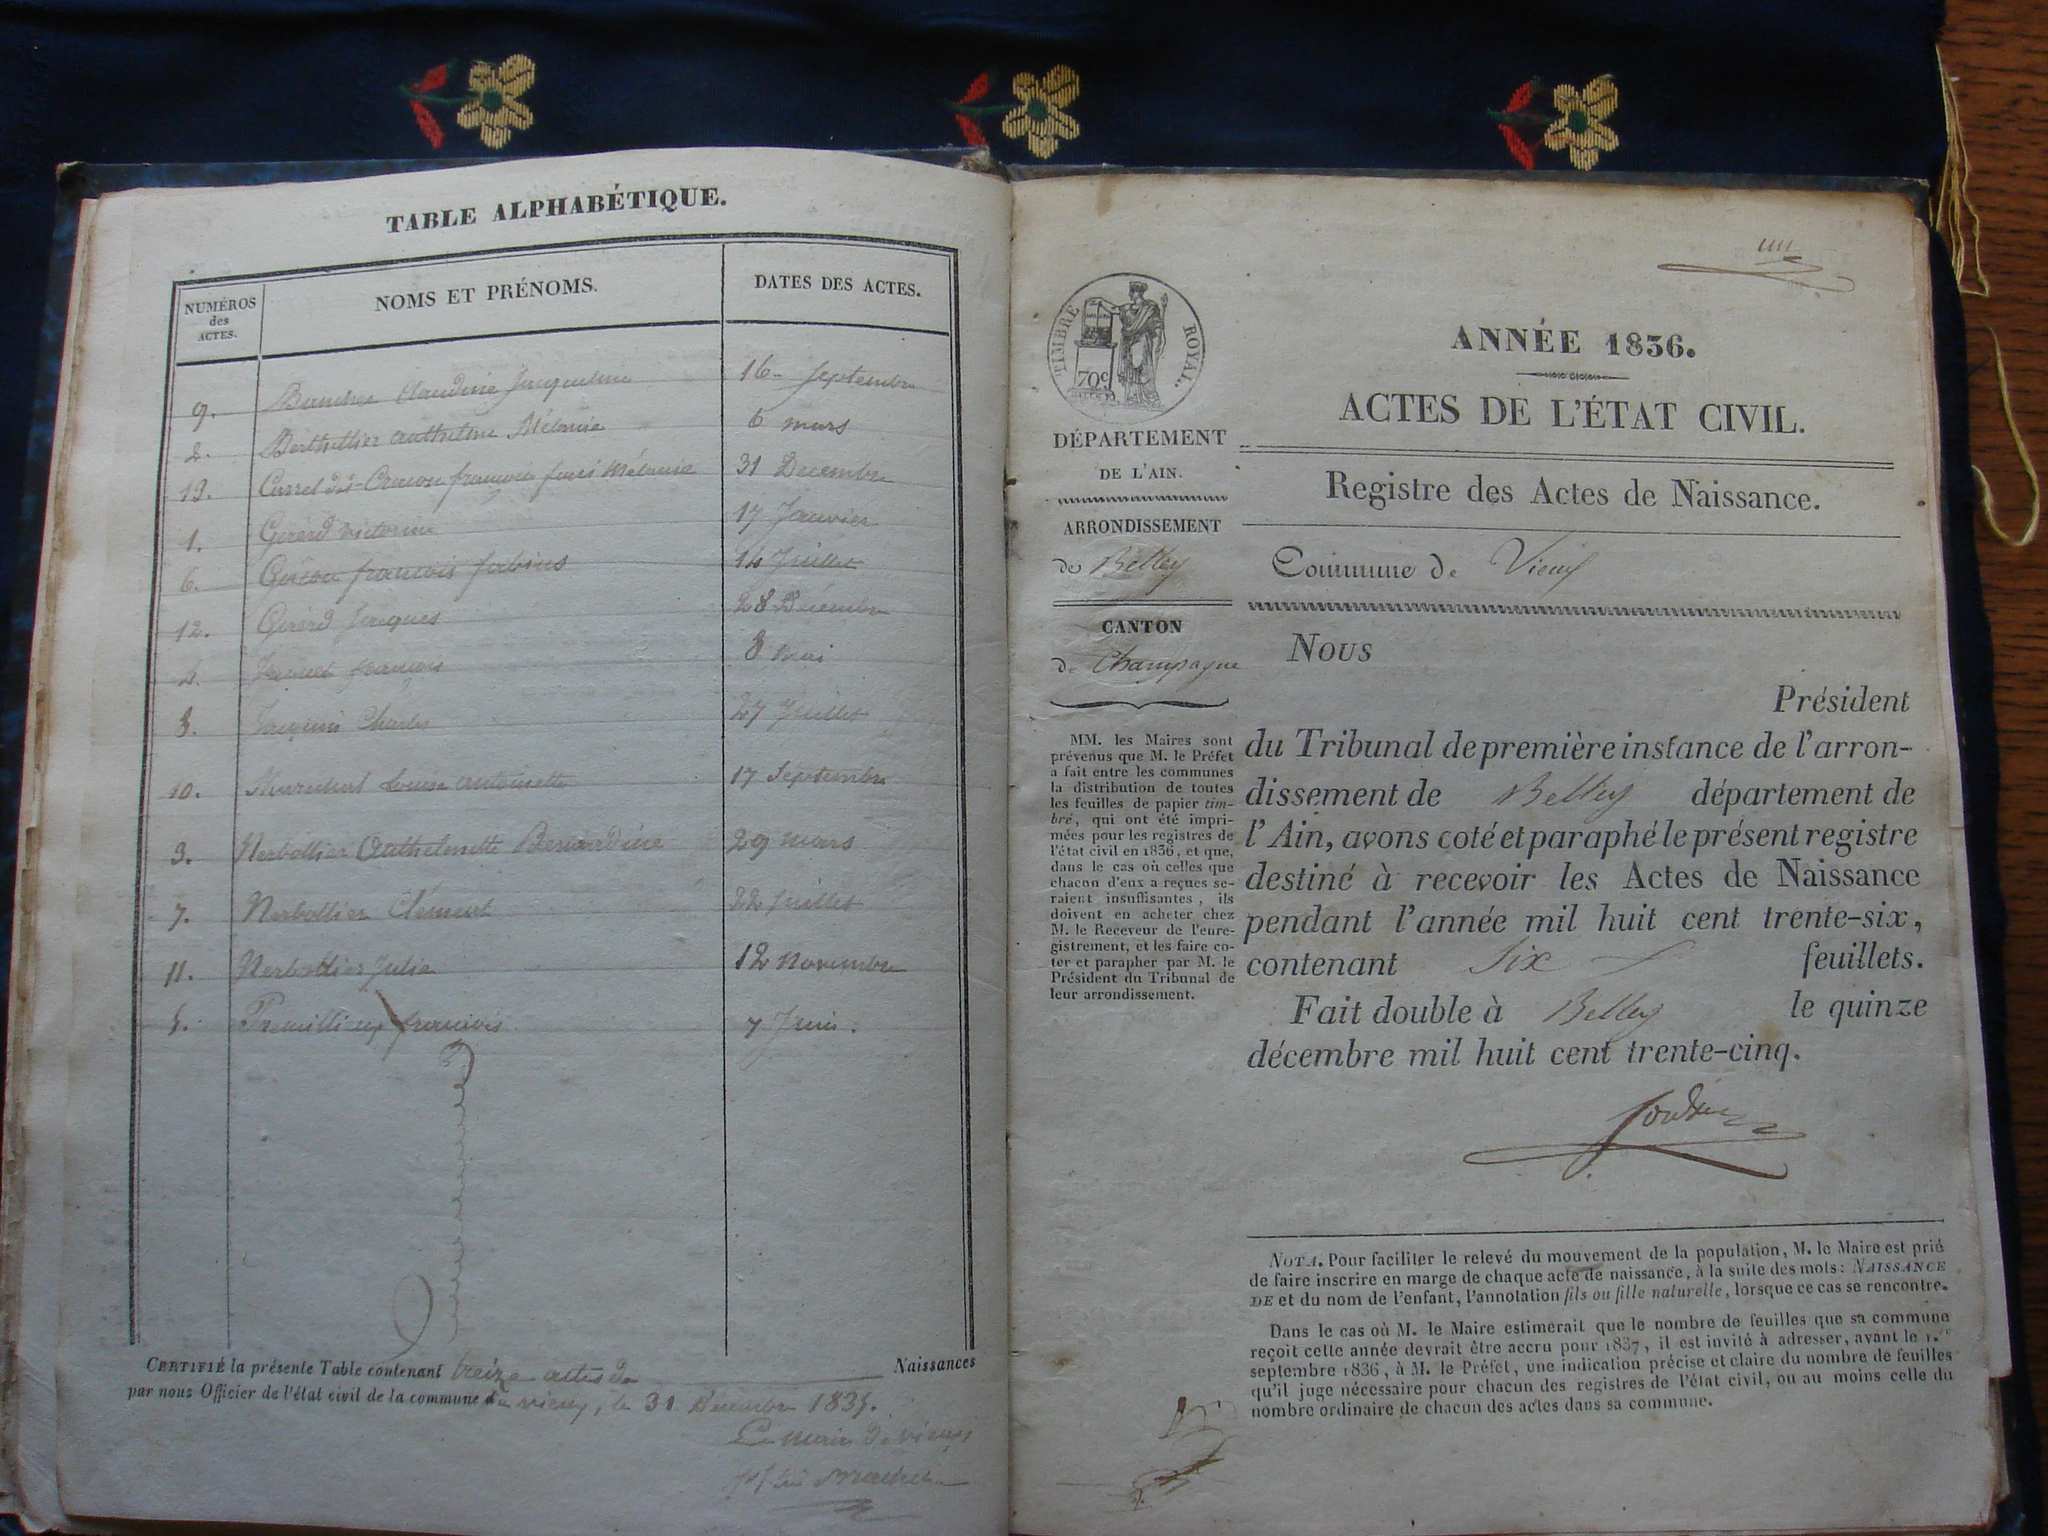 TABLE ALPHABÉTIQUE.
NUMÉROS des ACTES. NOMS ET PRÉNOMS. DATES DES ACTES.
9. Claudine Jacqueline 16 Septembre
2. Berthillier Anthelme Mélanie 6 mars
13. Mélanie 31 Decembre
1. Girerd victorine 17 Janvier
6. françois fabius 14 Juillet
12. Girerd Jacques 28 Décembre
4. françois 8 mai
8. Charles 27 Juillet
10. Louise antoinette 17 Septembre
3. Nerbollier Anthelmette Bernardine 29 mars
7. Nerbollier Clément 22 Juillet
11. Nerbollier Julie 12 Novembre
5. françois 7 Juin.
CERTIFIÉ la présente Table contenant treize actes de Naissances
par nous Officier de l'état civil de la commune de vieux, le 31 Decembre 1835.
Le maire de vieux
ANNÉE 1836.
ACTES DE L'ÉTAT CIVIL.
Registre des Actes de Naissance.
Commune de Vieux
TIMBRE ROYAL.
70c
DÉPARTEMENT
DE L'AIN.
ARRONDISSEMENT
de Belley
CANTON
de Champagne
MM. les Maires sont
prévenus que M. le Préfet
a fait entre les communes
la distribution de toutes
les feuilles de papier tim-
bré, qui ont été impri-
mées pour les registres de
l'état civil en 1836, et que,
dans le cas où celles que
chacun d'eux a reçues se-
raient insuffisantes, ils
doivent en acheter chez
M. le Receveur de l'enre-
gistrement, et les faire co-
ter et parapher par M. le
Président du Tribunal de
leur arrondissement.
Nous
Président
du Tribunal de première instance de l'arron-
dissement de Belley département de
l'Ain, avons coté et paraphé le présent registre
destiné à recevoir les Actes de Naissance
pendant l'année mil huit cent trente-six,
contenant six feuillets.
Fait double à Belley le quinze
décembre mil huit cent trente-cinq.
NOTA. Pour faciliter le relevé du mouvement de la population, M. le Maire est prié
de faire inscrire en marge de chaque acte de naissance, à la suite des mots: NAISSANCE
DE et du nom de l'enfant, l'annotation fils ou fille naturelle, lorsque ce cas se rencontre.
Dans le cas où M. le Maire estimerait que le nombre de feuilles que sa commune
reçoit cette année devrait être accru pour 1837, il est invité à adresser, avant le 1.er
septembre 1836, à M. le Préfet, une indication précise et claire du nombre de feuilles
qu'il juge nécessaire pour chacun des registres de l'état civil, ou au moins celle du
nombre ordinaire de chacun des actes dans sa commune.